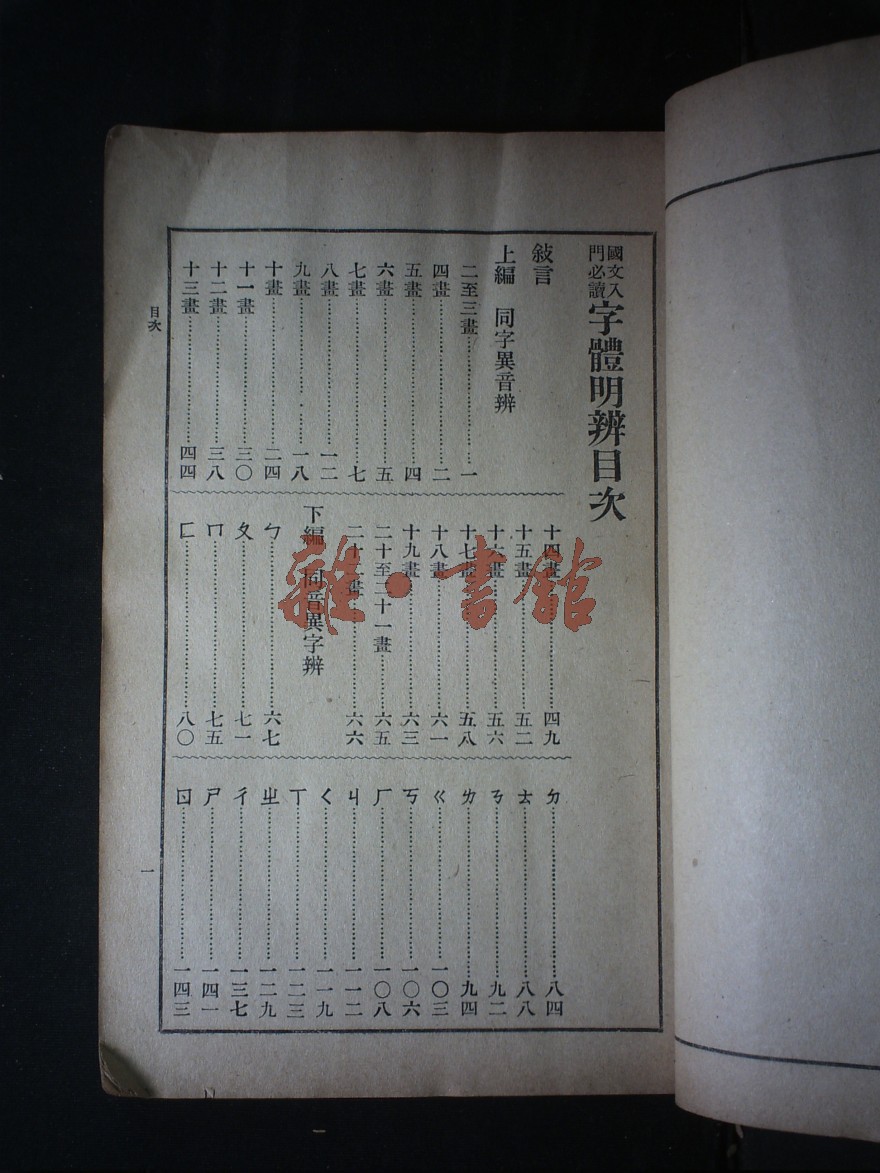 國文入門必讀 字體明辨目次
敍言
上編 同字異音辨
二至三畫…………一
四畫…………二
五畫…………四
六畫…………五
七畫…………七
八畫…………一二
九畫…………一八
十畫…………二四
十一畫…………三〇
十二畫…………三八
十三畫…………四四
十四畫…………四九
十五畫…………五二
十六畫…………五六
十七畫…………五八
十八畫…………六一
十九畫…………六三
二十至二十一畫…………六五
畫…………六六
下編 同音異字辨
ㄅ…………六七
ㄆ…………七一
ㄇ…………七五
ㄈ…………八〇
ㄉ…………八四
ㄊ…………八八
ㄋ…………九二
ㄌ…………九四
ㄍ…………一〇三
ㄎ…………一〇六
ㄏ…………一〇八
ㄐ…………一一二
ㄑ…………一一九
ㄒ…………一二三
ㄓ…………一二九
ㄔ…………一三七
ㄕ…………一四一
ㄖ…………一四三
目次
一
雜·書館